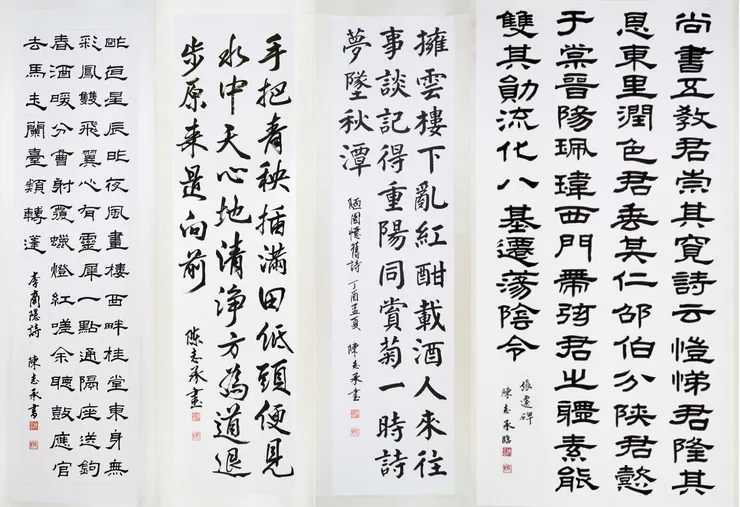 昨夜星辰昨夜風畫樓西畔桂堂東身無
彩鳳雙飛翼心有靈犀一點通隔座送鉤
春酒暖分曹射覆蠟燈紅嗟余聽鼓應官
去馬走蘭臺類轉蓬
李商隱詩 陳志承書
手把青秧插滿田低頭便見
水中天心地清淨方為道退
步原来是向前
陳志承書
擁雲樓下亂紅酣載酒人來往
事談記得重陽同賞菊一時詩
夢墜秋潭
陋園憶舊詩 丁酉孟夏 陳志承書
尚書五教君崇其寬詩云愷悌君隆其
恩東里潤色君垂其仁邵伯分陝君懿
于棠晉陽珮瑋西門帶弦君之體素能
雙其勛流化八基遷蕩陰令
張遷碑
陳志承臨